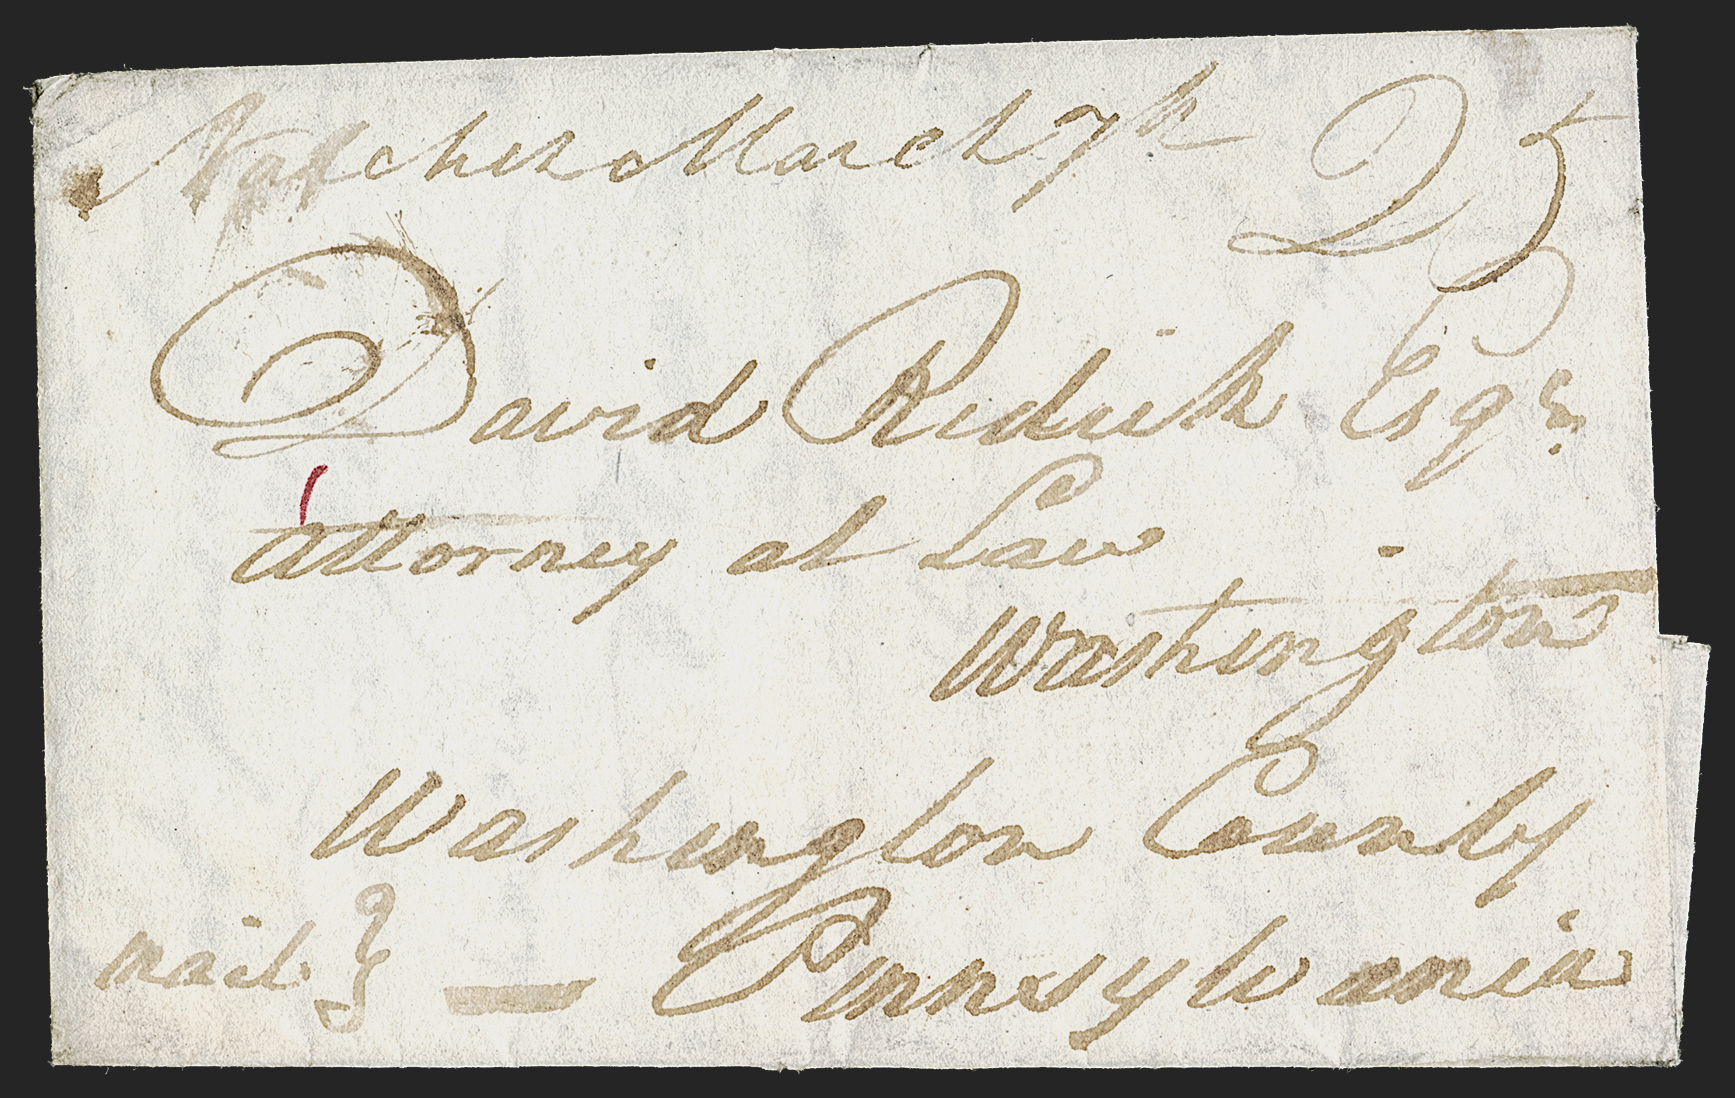 Natchez March 7th 25
David Redick Esqr.
Attorney at Law
Washington
Washington County
mail } — Pennsylvania